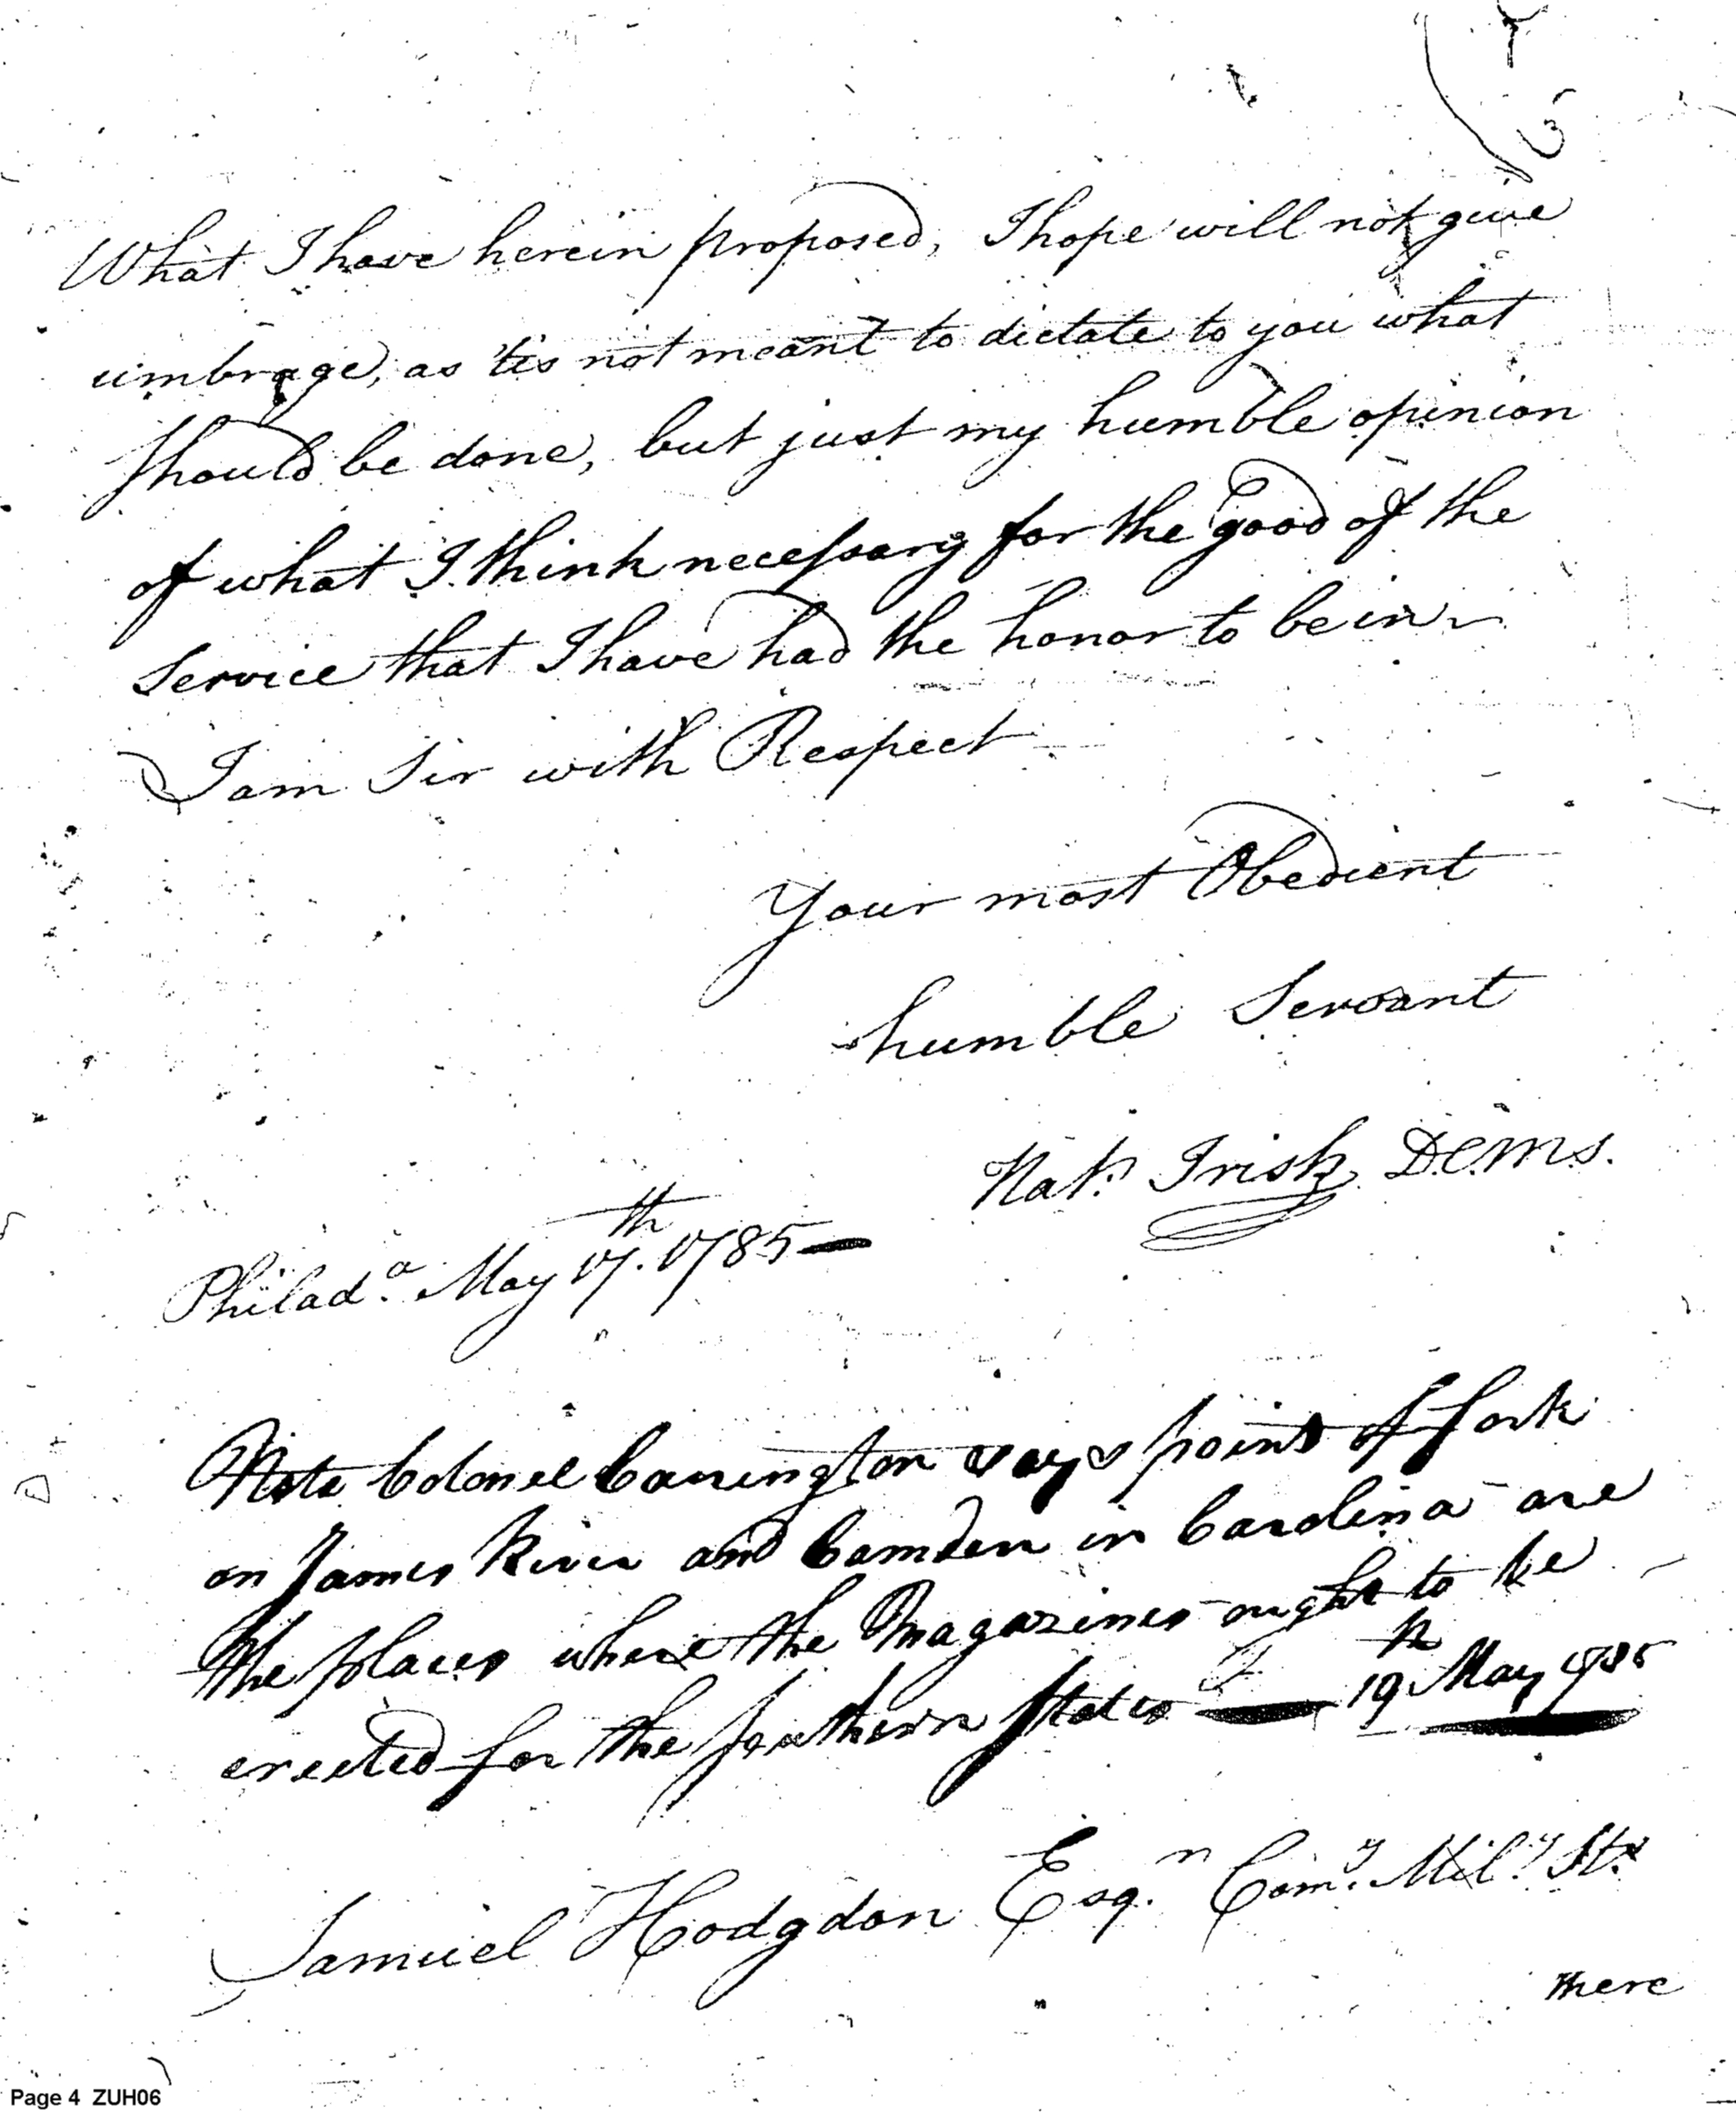 What I have herein proposed, I hope will not give
umbrage, as 'tis not meant to dictate to you what
should be done, but just my humble opinion
of what I think necessary for the good of the
service that I have had the honor to be in
I am Sir with Respect
Your most Obedient
humble Servant
Natl. Irish D.C.M.S.
Philad.a May 17th. 1785
Note Colonel Carrington says point of fork
on James River and Camden in Carolina are
the places where the Magazines ought to be
erected for the southern states 19th May 1785
Samuel Hodgdon Esq.r Com.y Mil.y Sts
there
Page 4 ZUH06